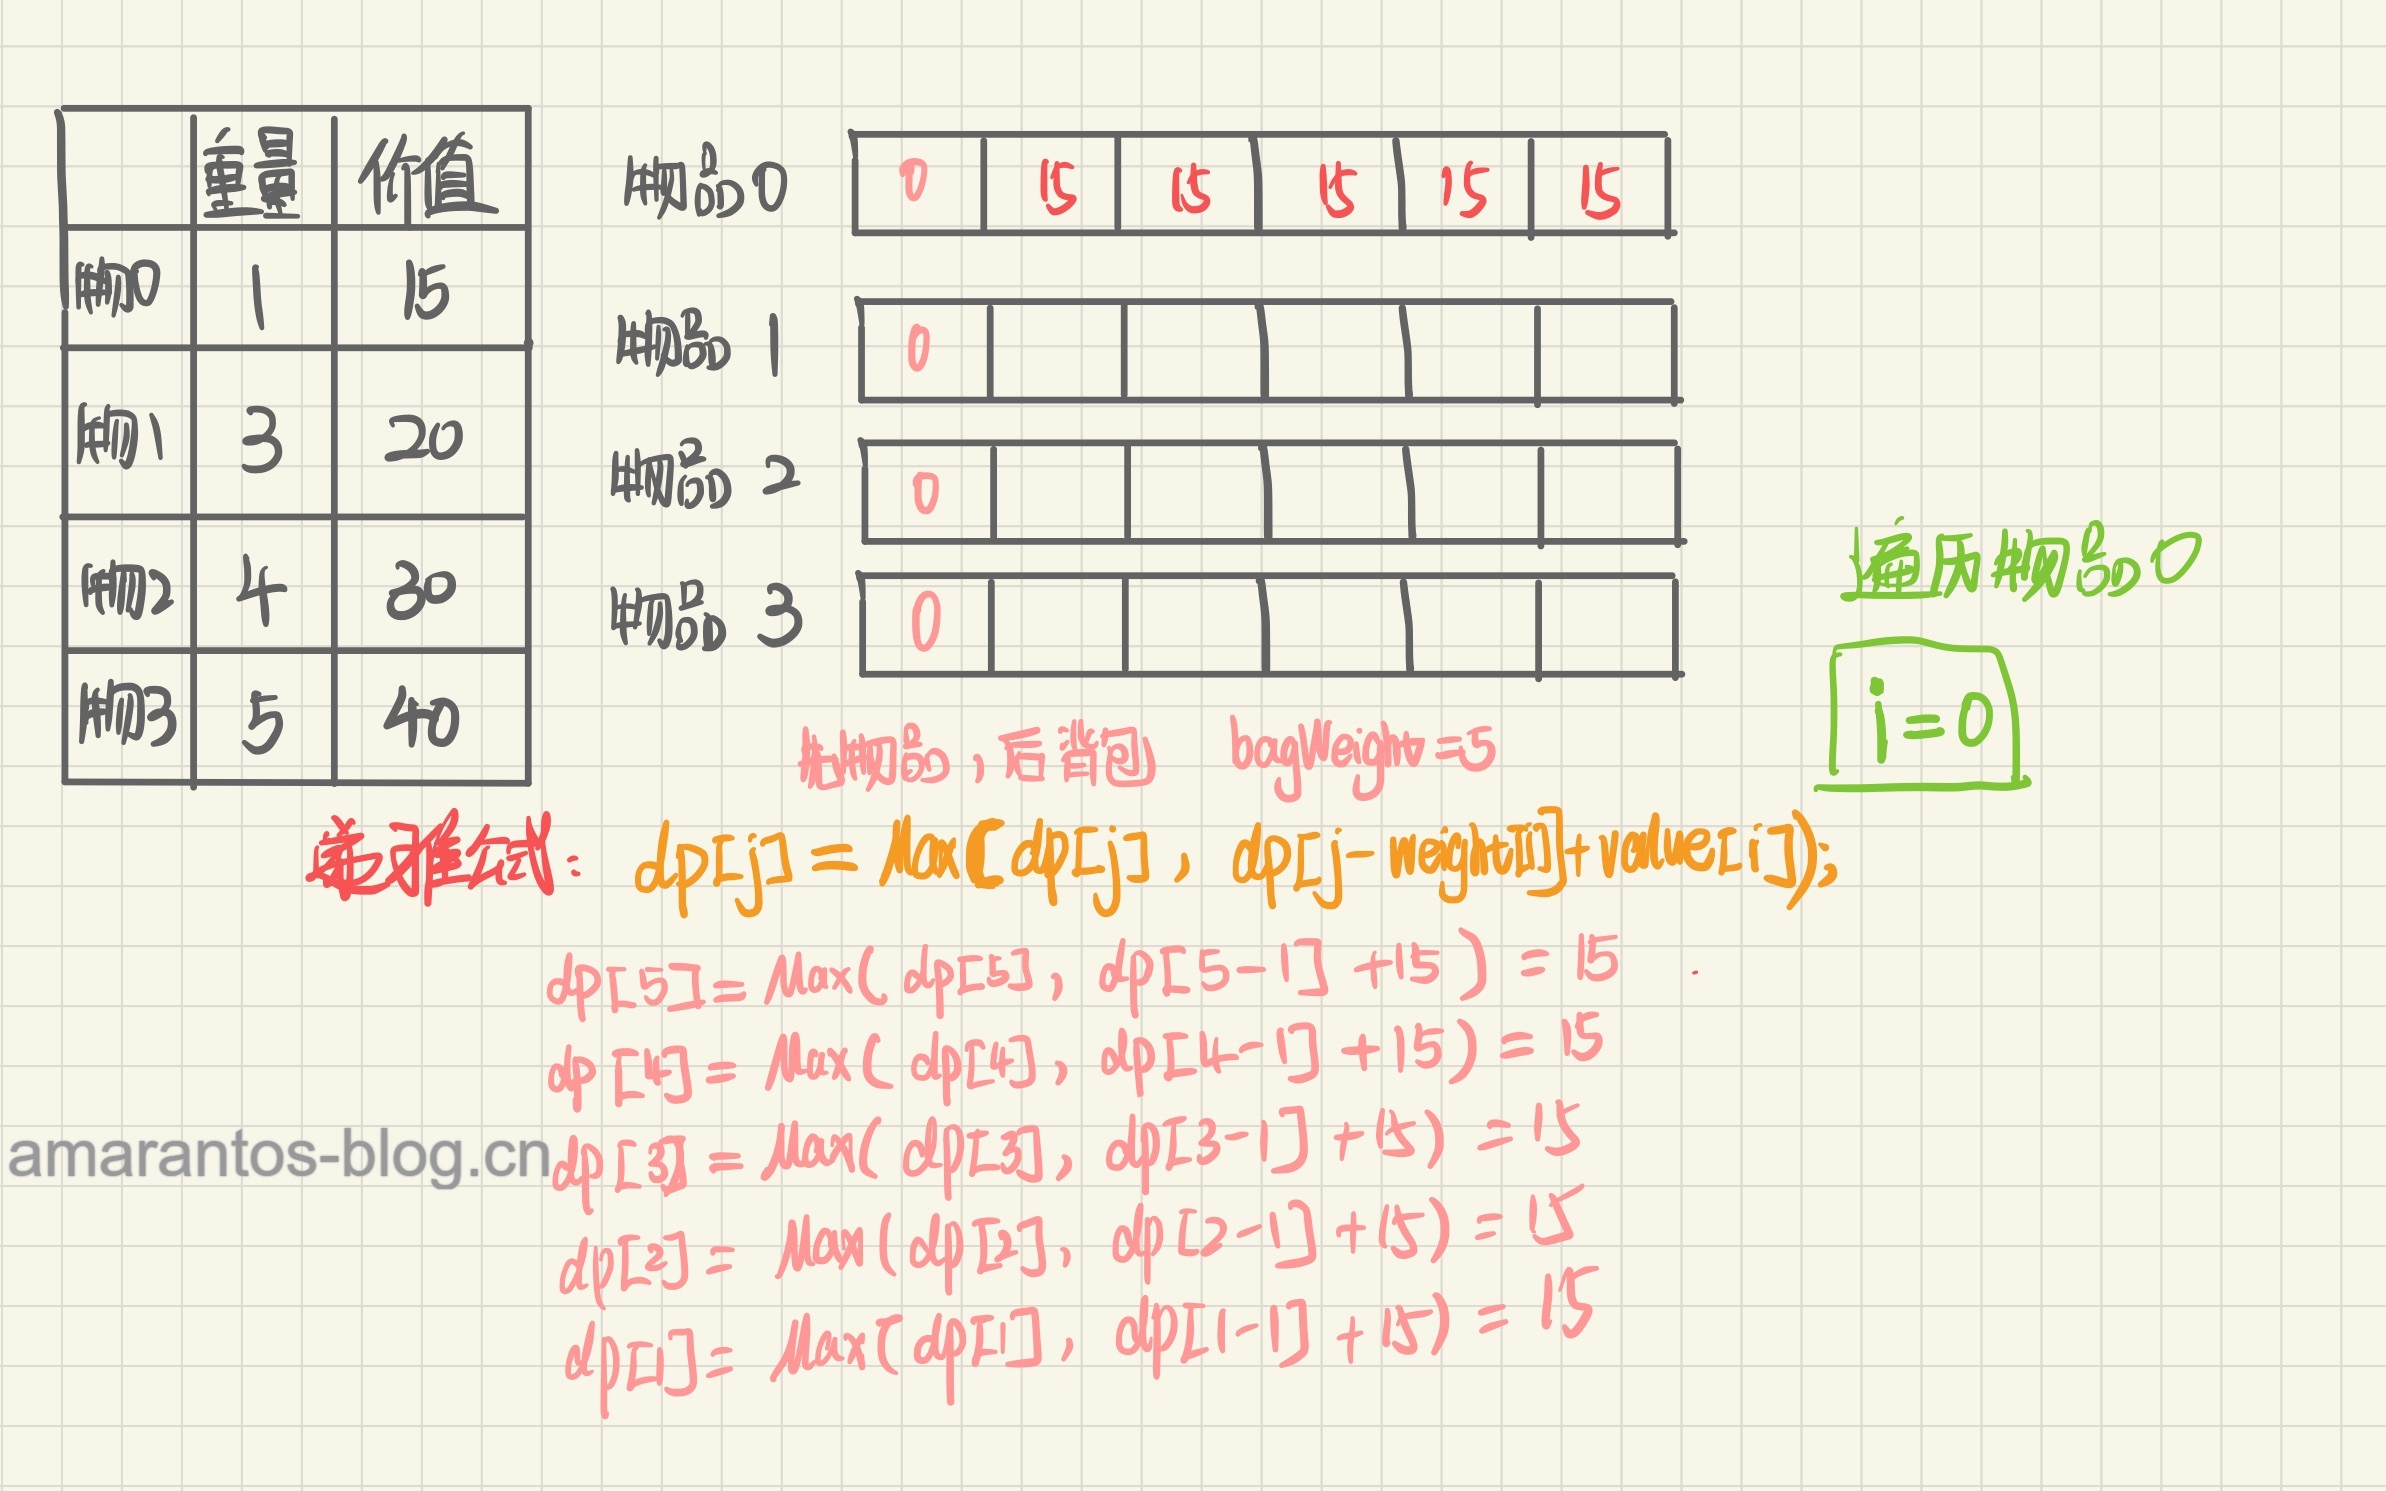 重量 价值
物品0 1 15
物品1 3 20
物品2 4 30
物品3 5 40
物品0 0 15 15 15 15 15
物品1 0
物品2 0
物品3 0
遍历物品0
i=0
先物品，后背包 bagWeight=5
递推公式: dp[j] = Max(dp[j], dp[j-weight[i]]+value[i]);
dp[5] = Max(dp[5], dp[5-1]+15) = 15
dp[4] = Max(dp[4], dp[4-1]+15) = 15
dp[3] = Max(dp[3], dp[3-1]+15) = 15
dp[2] = Max(dp[2], dp[2-1]+15) = 15
dp[1] = Max(dp[1], dp[1-1]+15) = 15
amarantos-blog.cn